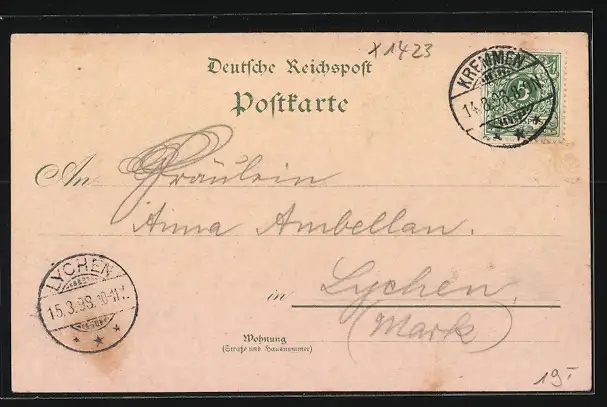 x 1423
Deutsche Reichspost
Postkarte
KREMMEN
14.8.98
5
An Fräulein
Anna Ambellan.
LYCHEN
15.8.98.10-11V.
in Lychen,
(Mark)
Wohnung
(Straße und Hausnummer)
19.-